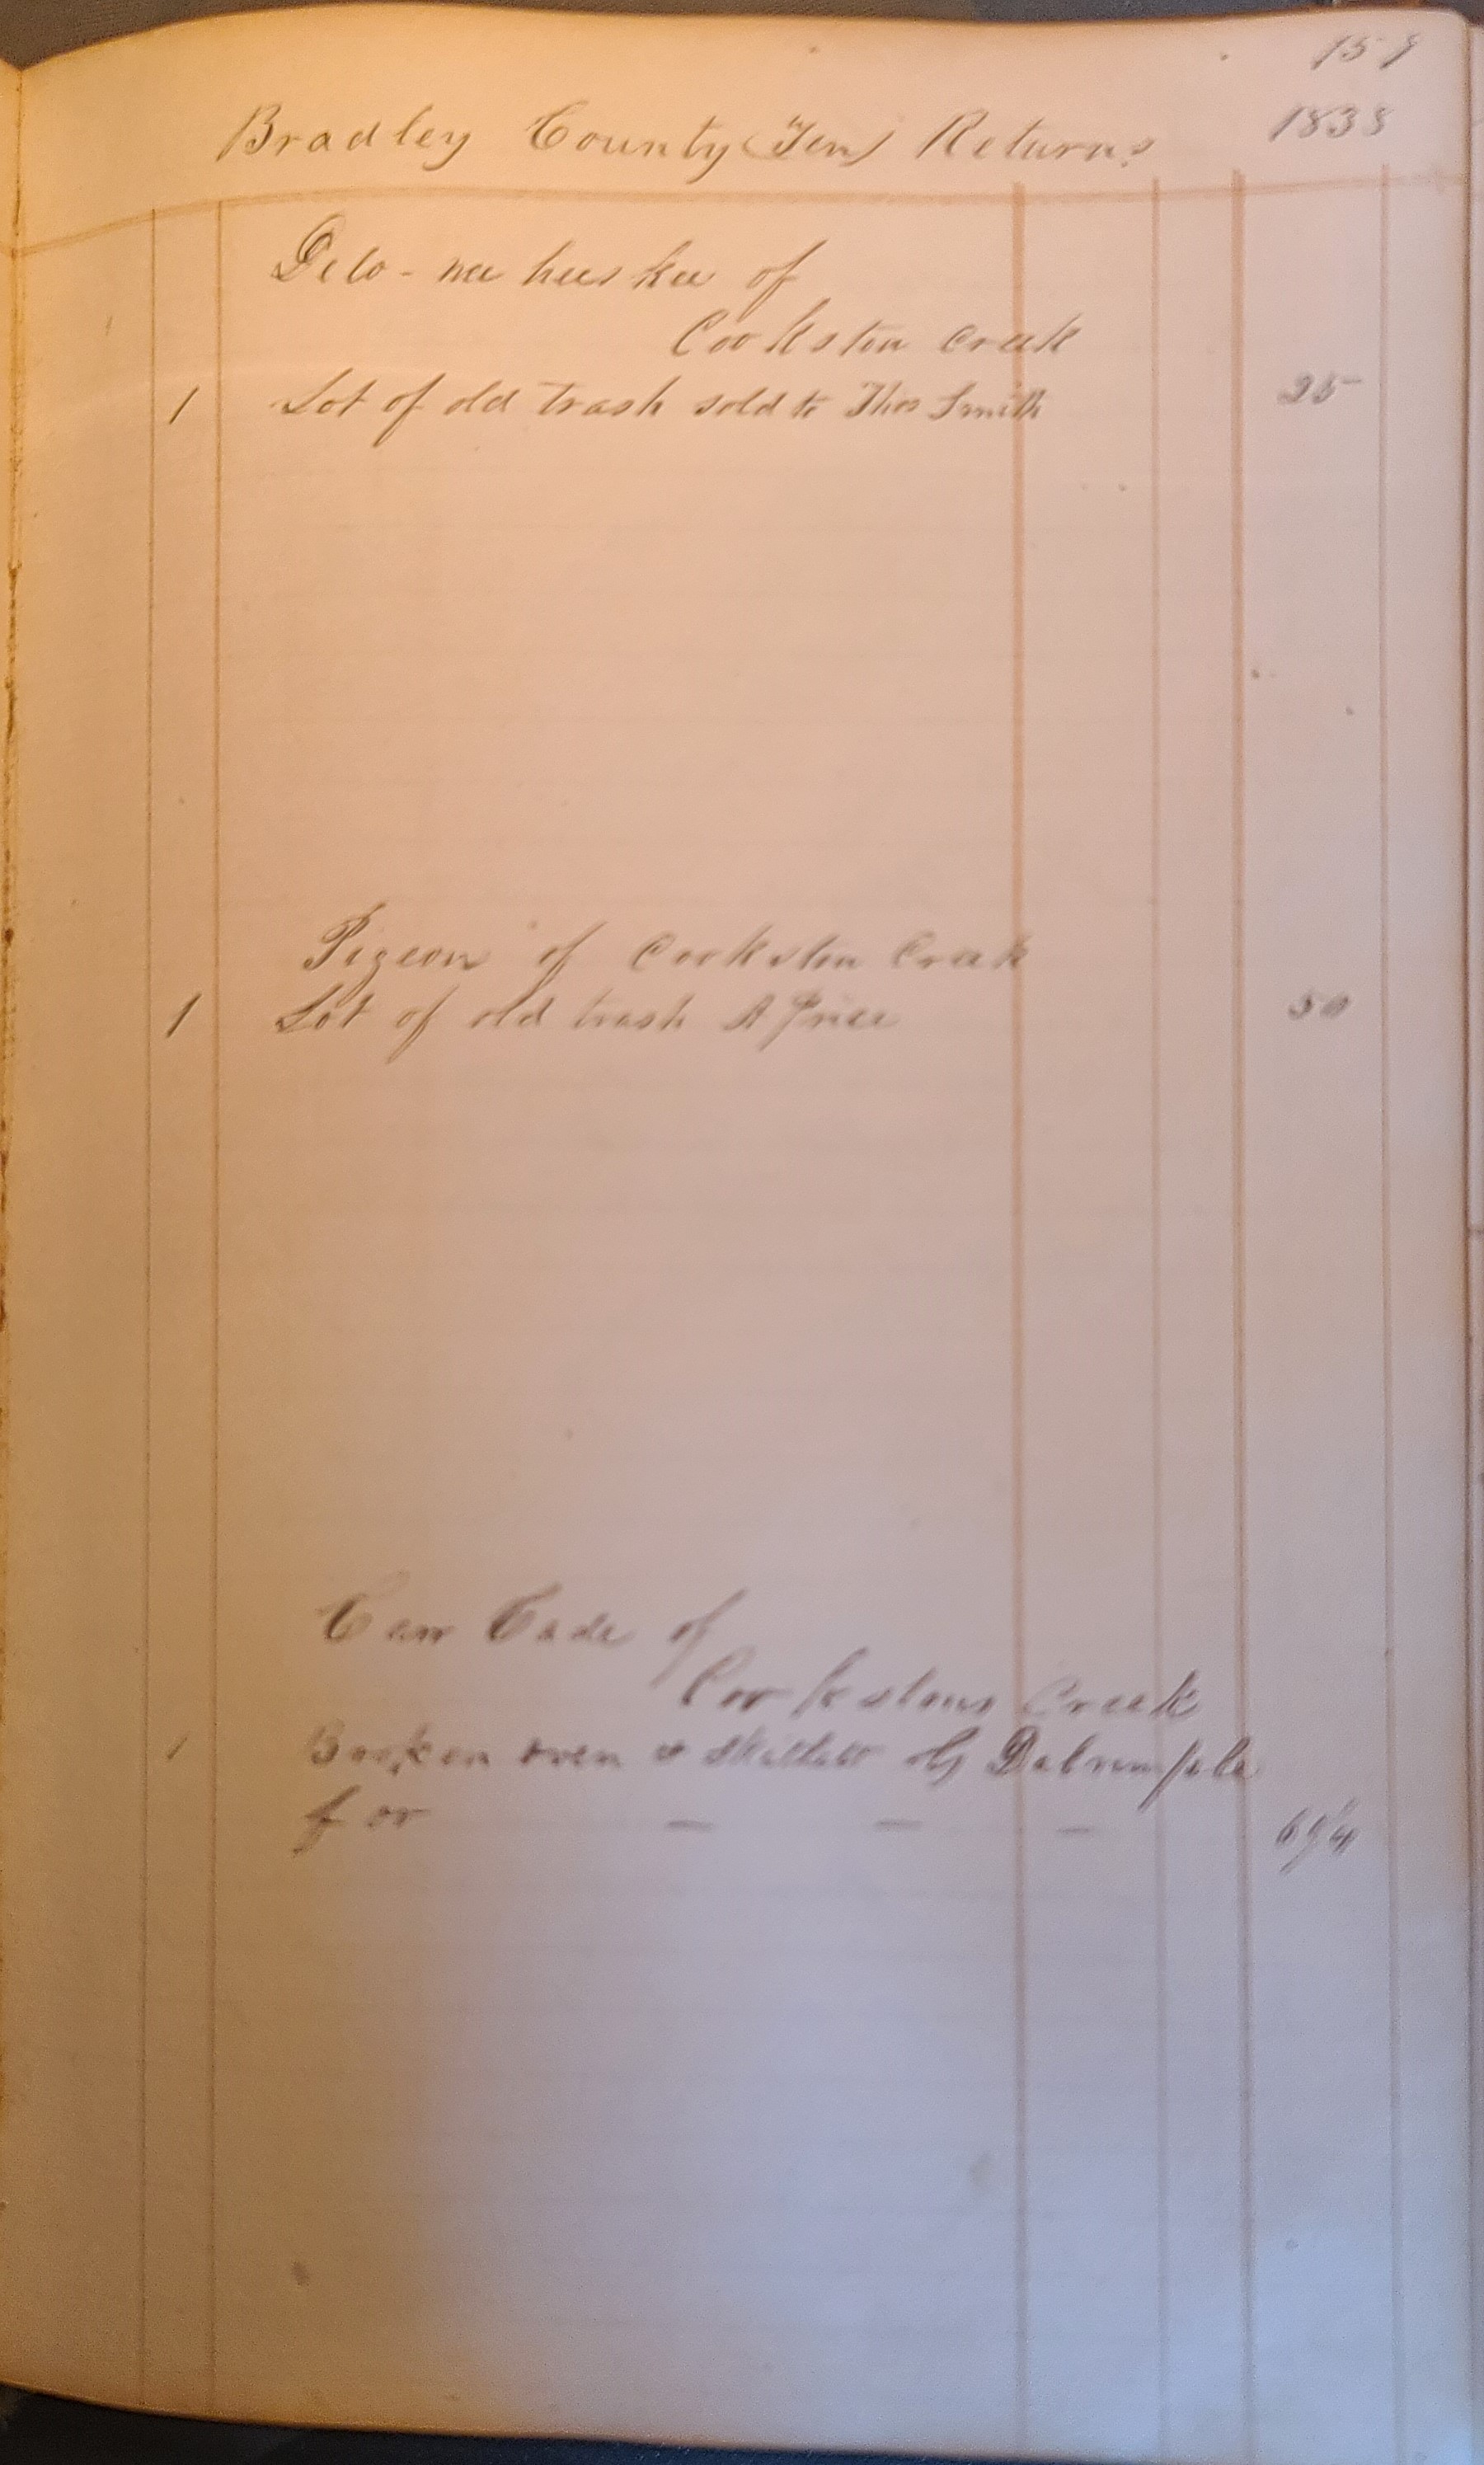 159
Bradley County (Ten) Returns 1838
of
Cookston Creek
1 Lot of old trash sold to Thos Smith 25
Pigeon of Cookston Creek
1 Lot of old trash A Price 50
of
Cookstons Creek
1 Broken oven & skillet Dalrumple
for — — — 6 1/4